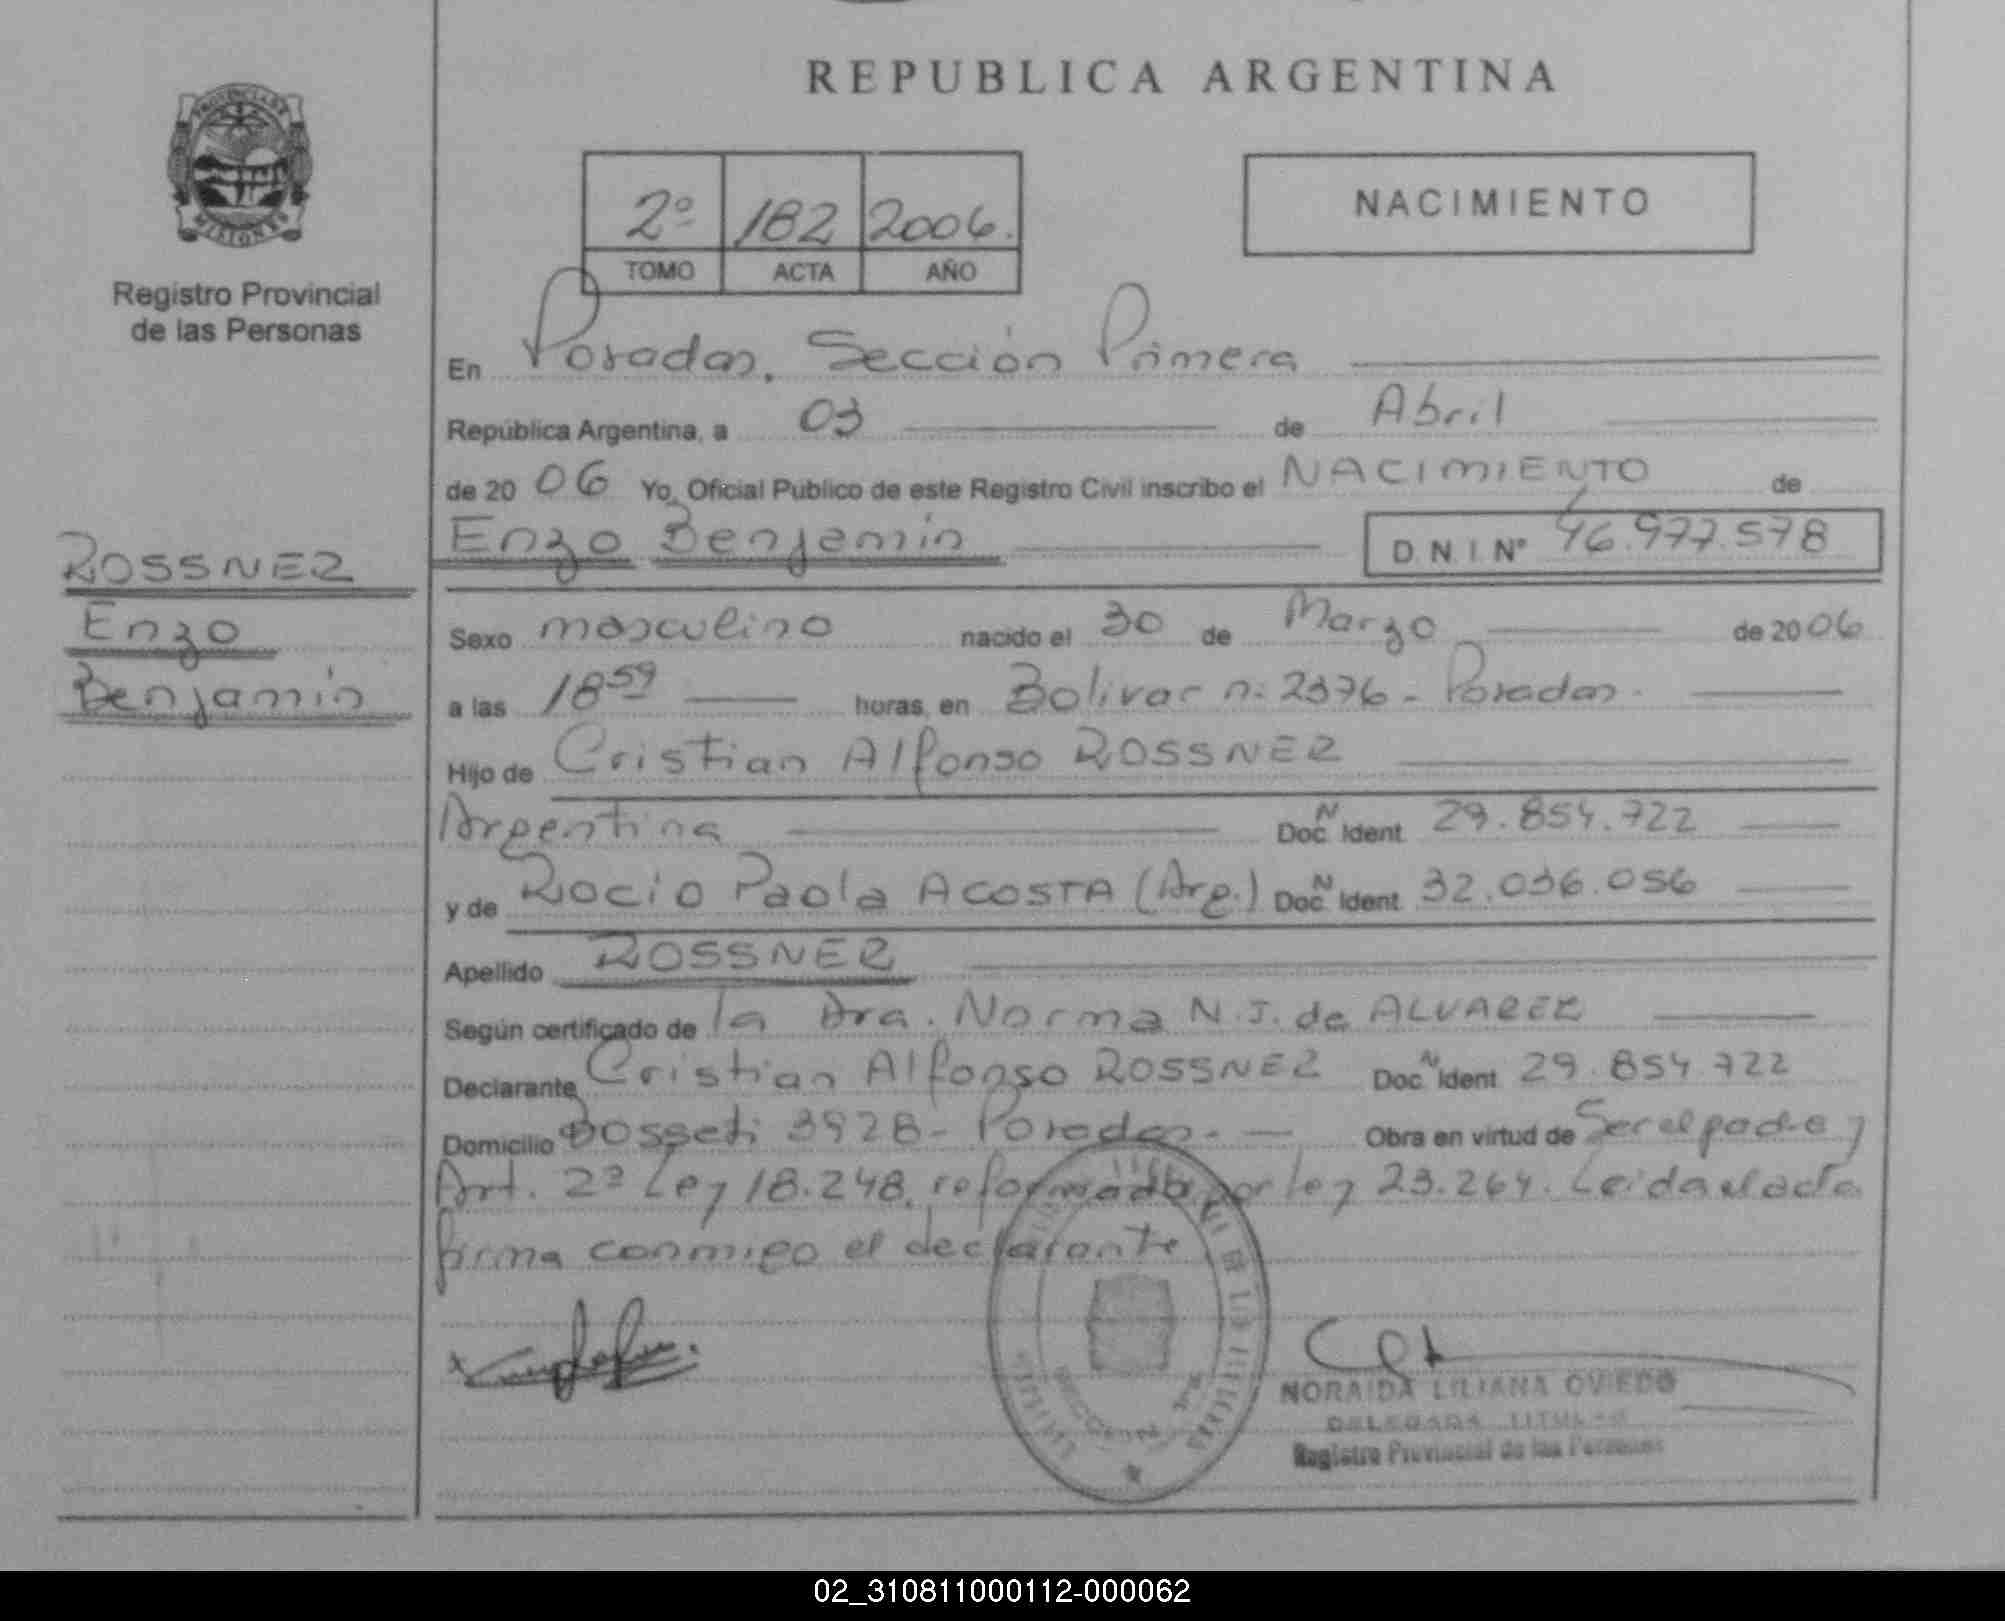 REPUBLICA ARGENTINA
PROVINCIA DE
MISIONES
Registro Provincial
de las Personas
2º 182 2006.
TOMO ACTA AÑO
NACIMIENTO
En Posadas, Sección Primera
República Argentina, a 03 de Abril
de 2006 Yo, Oficial Publico de este Registro Civil inscribo el NACIMIENTO de
Enzo Benjamin D.N.I. Nº 46.977.578
ROSSNER
Enzo
Benjamin
Sexo masculino nacido el 30 de Marzo de 2006
a las 18 59 horas, en Bolivar n: 2376 - Posadas.
Hijo de Cristian Alfonso ROSSNER
Argentina Doc. N Ident 29.854.722
y de Rocio Paola ACOSTA (Arg.) Doc. N Ident 32.036.056
Apellido ROSSNER
Según certificado de la Dra. Norma N.J. de ALVAREZ
Declarante Cristian Alfonso ROSSNER Doc. N Ident 29.854.722
Domicilio Bosseti 3928 - Posadas. - Obra en virtud de Ser el padre y
Art. 2º Ley 18.248, reformada por ley 23.264. Leida el acta
firma conmigo el declarante
NORAIDA LILIANA OVIEDO
DELEGADA TITULAR
Registro Provincial de las Personas
02_310811000112-000062